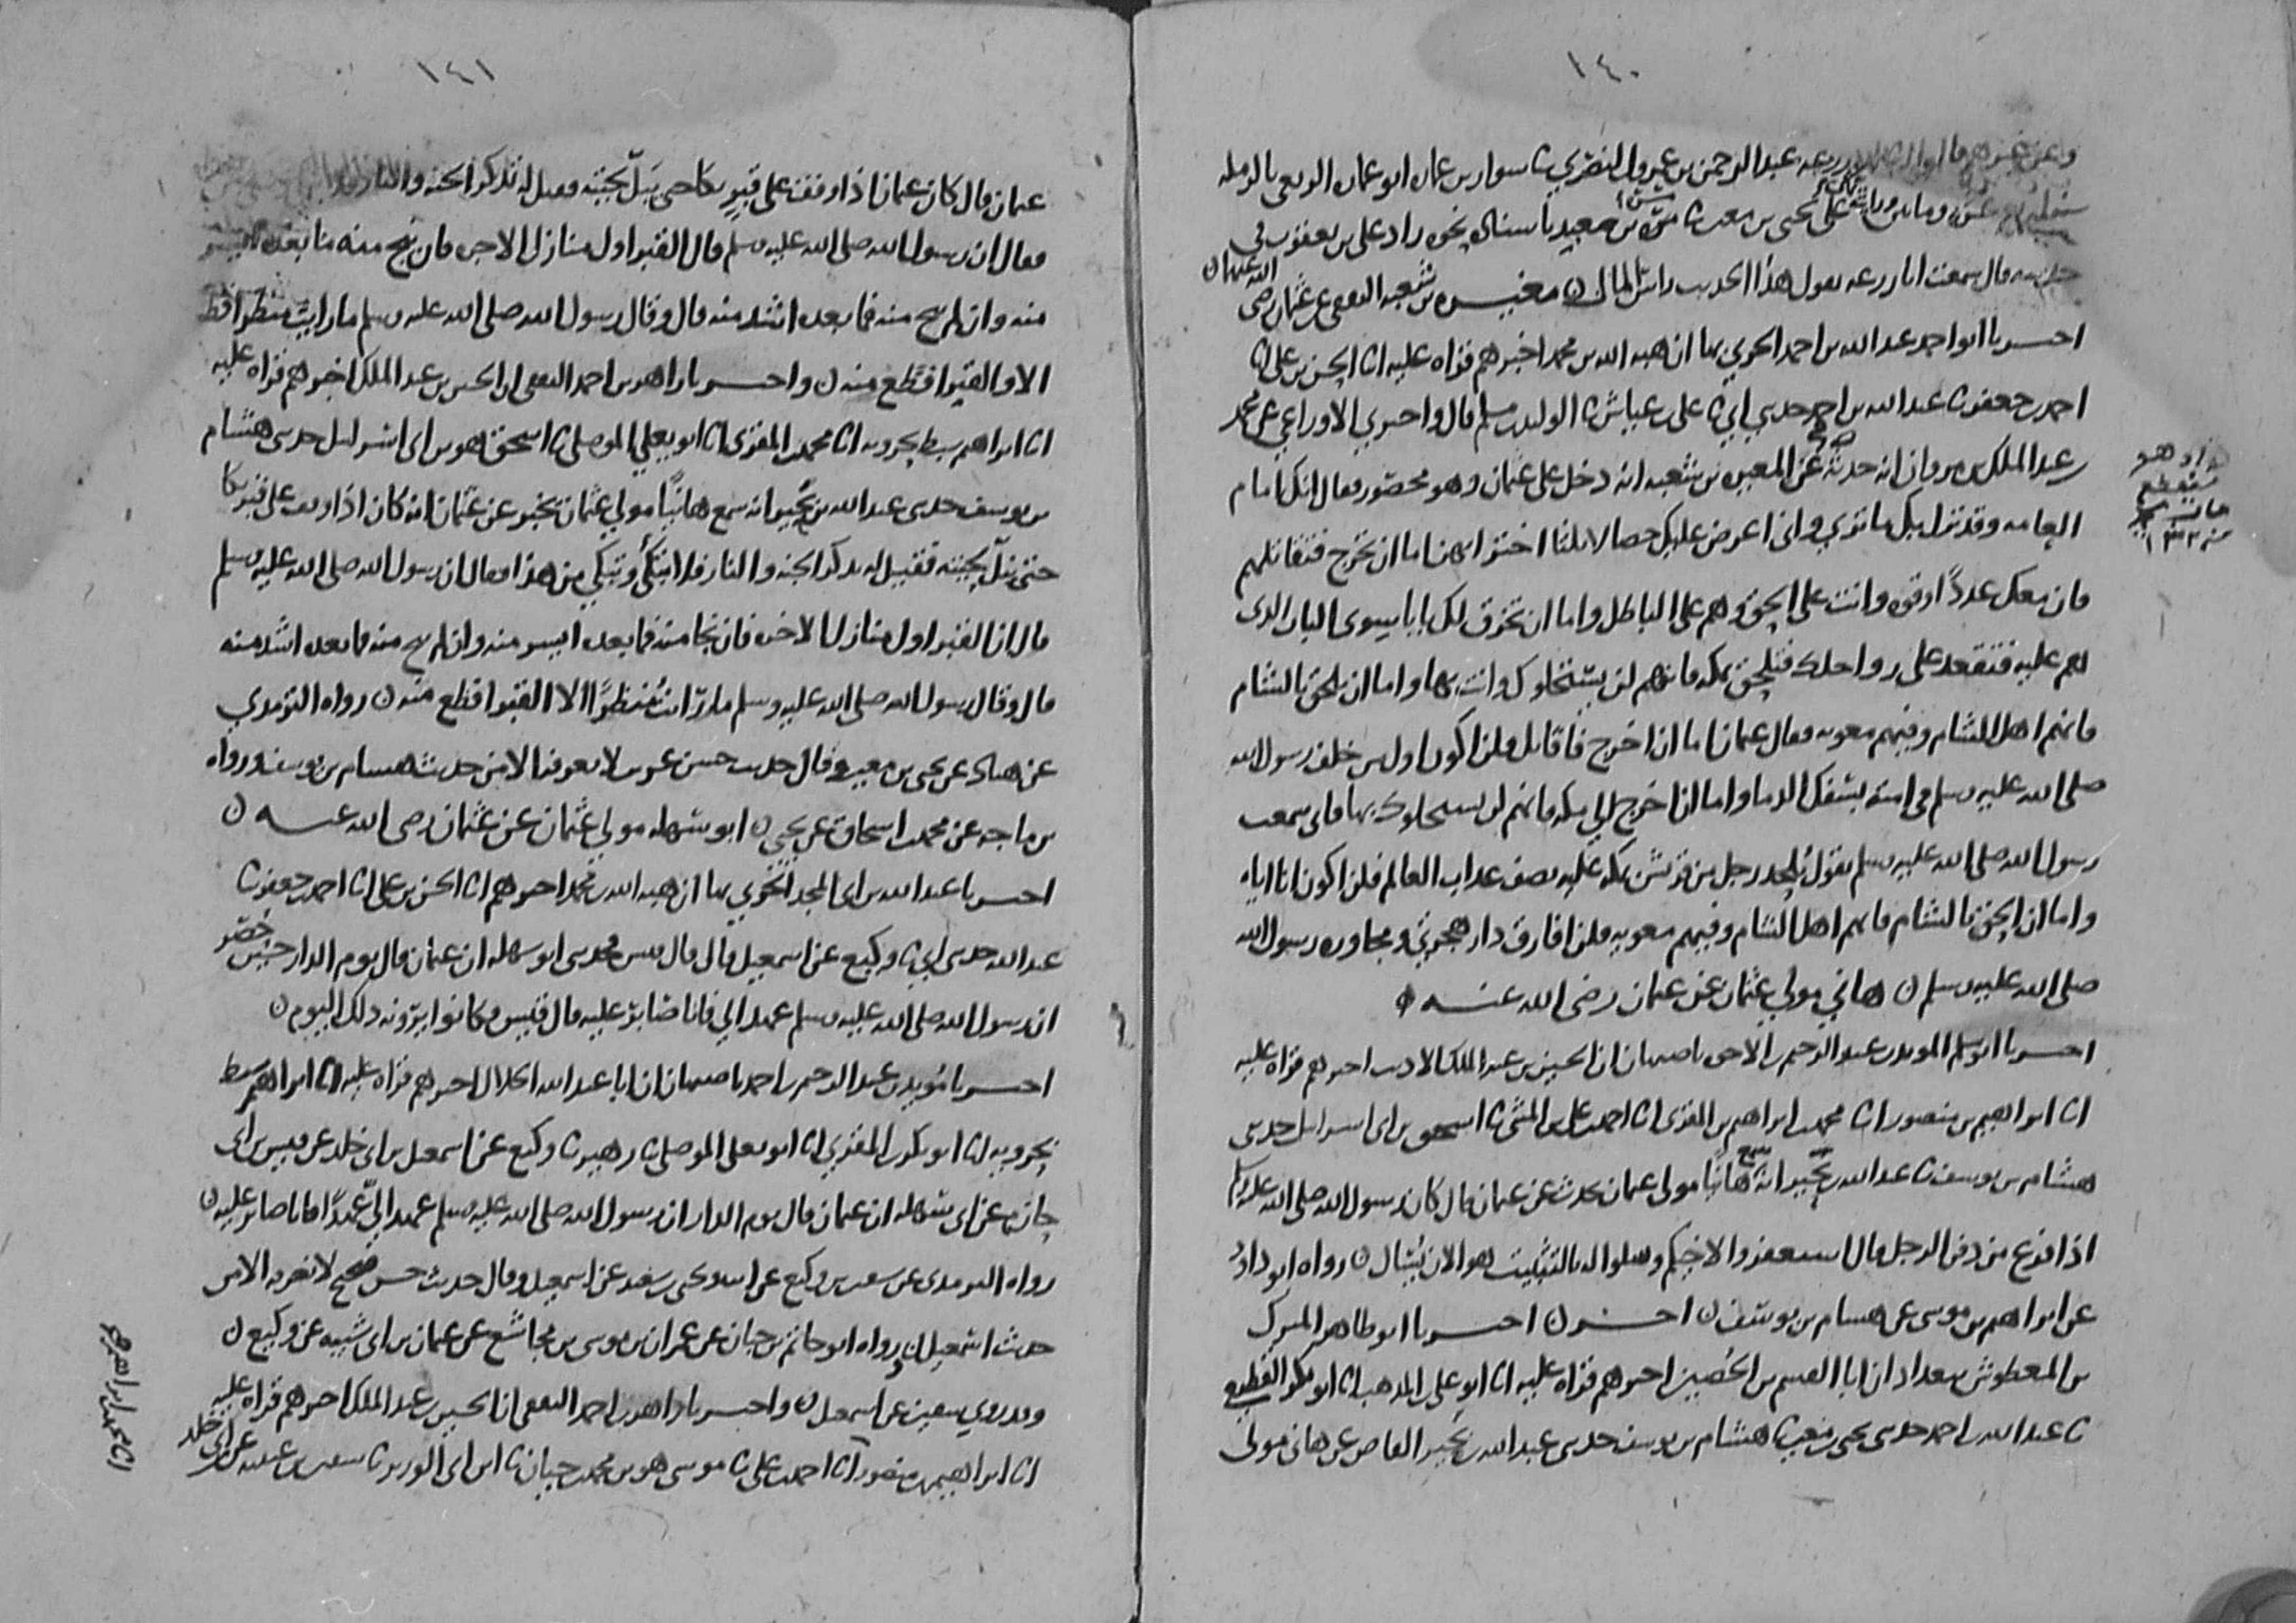 ١٤٠
عبد الرحمن بن عمرو النصري ثنا سوار بن عمارة ابو عمارة الربعي بالرملة
يحيى بن معين باسناده نحوه زاد علي بن يعقوب في
قال سمعت ابا زرعه يقول هذا الحديث راس المال ن مغيرة بن شعبه الثقفي عن عثمان رضي الله عنهما ن
اخبرنا ابو احمد عبد الله بن احمد الحربي بها ان هبه الله بن محمد اخبرهم قراه عليه انا الحسن بن علي انا
احمد بن جعفر ثنا عبد الله بن احمد حدثني ابي ثنا علي بن عياش ثنا الوليد بن مسلم قال واخبرني الاوزاعي عن محمد
بن عبد الملك بن مروان انه حدثه عن المغيره بن شعبه انه دخل على عثمان وهو محصور فقال انك امام
العامه وقد نزل بك ما ترى واني اعرض عليك خصالا ثلثا اختر احداهن اما ان تخرج فتقاتلهم
فان معك عددا وقوه وانت على الحق وهم على الباطل واما ان تخرق لك بابا سوى الباب الذي
هم عليه فتقعد على رواحلك فتلحق بمكه فانهم لن يستحلوك وانت بها واما ان تلحق بالشام
فانهم اهل الشام وفيهم معويه فقال عثمان اما ان اخرج فاقاتل فلن اكون اول من خلف رسول الله
صلى الله عليه وسلم في امته بسفك الدما واما ان اخرج الى مكه فانهم لن يستحلوك بها فاني سمعت
رسول الله صلى الله عليه وسلم يقول يلحد رجل من قريش بمكه عليه نصف عذاب العالم فلن اكون انا اياه
واما ان الحق بالشام فانهم اهل الشام وفيهم معويه فلن افارق دار هجرتي ومجاوره رسول الله
صلى الله عليه وسلم ن هاني مولى عثمان عن عثمان رضي الله عنه ن
اخبرنا ابو مسلم المويد بن عبد الرحيم بن الاخوه باصبهان ان الحسين بن عبد الملك الاديب اخبرهم قراه عليه
انا ابراهيم بن منصور انا محمد بن ابراهيم بن المقري انا احمد بن علي بن المثنى ثنا اسحق بن ابي اسرايل حدثني
هشام بن يوسف ثنا عبد الله بن بحير انه سمع هانيا مولى عثمان يحدث عن عثمان قال كان رسول الله صلى الله عليه وسلم
اذا فرغ من دفن الرجل قال استغفروا لاخيكم وسلوا له بالتثبيت هو الان يسال ن رواه ابو داود
عن ابراهيم بن موسى عن هشام بن يوسف ن اخر ن اخبرنا ابو طاهر المبرك
بن المعطوش ببغداد ان ابا القسم بن الحصين اخبرهم قراه عليه انا ابو علي بن المذهب انا ابو بكر القطيعي
ثنا عبد الله بن احمد حدثني يحيى بن معين ثنا هشام بن يوسف حدثني عبد الله بن بحير القاص عن هاني مولى
١٤١
عثمان قال كان عثمان اذا وقف على قبر بكا حتى يبل لحيته فقيل له تذكر الجنه والنار
فقال ان رسول الله صلى الله عليه وسلم قال القبر اول منازل الاخره فان نجي منه فما بعده ايسر
منه وان لم ينج منه فما بعده اشد منه قال وقال رسول الله صلى الله عليه وسلم ما رايت منظرا قط
الا والقبر افظع منه ن واخبرنا زاهر بن احمد الثقفي ان الحسين بن عبد الملك اخبرهم قراه عليه
انا ابراهيم سبط بحرويه انا محمد بن المقري انا ابو يعلي الموصلي ثنا اسحق هو بن ابي اسرايل حدثني هشام
بن يوسف حدثني عبد الله بن بحير انه سمع هانيا مولى عثمان يخبر عن عثمان انه كان اذا وقف على قبر بكا
حتى تبل لحيته فقيل له تذكر الجنه والنار فلا تبكي وتبكي من هذا فقال ان رسول الله صلى الله عليه وسلم
قال ان القبر اول منازل الاخره فان نجا منه فما بعده ايسر منه وان لم ينج منه فما بعده اشد منه
قال وقال رسول الله صلى الله عليه وسلم ما رايت منظرا الا القبر افظع منه ن رواه الترمذي
عن هناد عن يحيى بن معين وقال حديث حسن غريب لا نعرفه الا من حديث هشام بن يوسف ورواه
بن ماجه عن محمد بن اسحاق عن يحيى ن ابو سهله مولى عثمان عن عثمان رضي الله عنه ن
اخبرنا عبد الله بن ابي المجد الحربي بها ان هبه الله بن محمد اخبرهم انا الحسن بن علي انا احمد بن جعفر ثنا
عبد الله حدثني ابي ثنا وكيع عن اسمعيل قال قال قيس فحدثني ابو سهله ان عثمان قال يوم الدار حين حصر
ان رسول الله صلى الله عليه وسلم عهد الي فانا صابر عليه قال قيس فكانوا يرونه ذلك اليوم ن
اخبرنا مويد بن عبد الرحيم بن احمد باصبهان ان ابا عبد الله الخلال اخبرهم قراه عليه انا ابراهيم سبط
بحرويه انا ابو بكر بن المقري انا ابو يعلى الموصلي ثنا زهير ثنا وكيع عن اسمعيل بن ابي خلد عن قيس بن ابي
حازم عن ابي سهله ان عثمان قال يوم الدار ان رسول الله صلى الله عليه وسلم عهد الي عهدا فانا صابر عليه ن
رواه الترمذي عن سفيان بن وكيع عن ابيه ويحيى بن سعيد عن اسمعيل وقال حديث حسن صحيح لا نعرفه الا من
حديث اسمعيل ن ورواه ابو حاتم بن حبان عن عمران بن موسى بن مجاشع عن عثمان بن ابي شيبه عن وكيع ن
وقد روى سفين عن اسمعيل ن واخبرنا زاهر بن احمد الثقفي ان الحسين بن عبد الملك اخبرهم قراه عليه
انا ابراهيم بن منصور انا احمد بن علي ثنا موسى هو بن محمد بن حيان ثنا
انا محمد بن ابراهيم